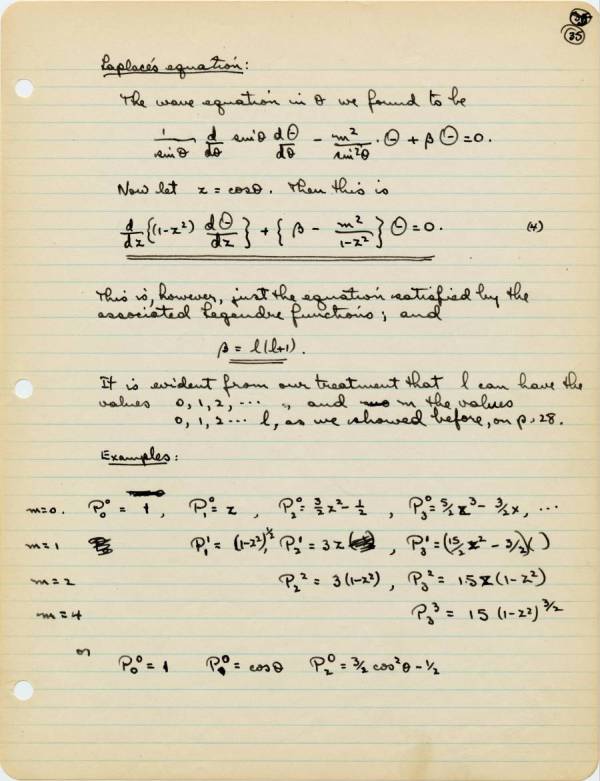 35
Laplace's equation:
The wave equation in θ we found to be
1/sinθ d/dθ sinθ dΘ/dθ - m²/sin²θ · Θ + β Θ = 0.
Now let z = cosθ. Then this is
d/dz {(1-z²) dΘ/dz} + {β - m²/1-z²} Θ = 0. (4)
This is, however, just the equation satisfied by the
associated Legendre functions; and
β = l(l+1).
It is evident from our treatment that l can have the
values 0, 1, 2, ··· , and m the values
0, 1, 2 ··· l, as we showed before, on p. 28.
Examples:
m=0. P₀⁰ = 1, P₁⁰ = z, P₂⁰ = 3/2 z² - 1/2, P₃⁰ = 5/2 z³ - 3/2 z, ···
m=1 P₁¹ = (1-z²)^1/2 P₂¹ = 3z P₃¹ = (15/2 z² - 3/2)( )
m=2 P₂² = 3(1-z²), P₃² = 15z(1-z²)
m=4 P₃³ = 15 (1-z²)^3/2
or
P₀⁰ = 1 P₁⁰ = cosθ P₂⁰ = 3/2 cos²θ - 1/2